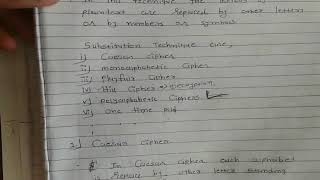 In this technique the letters of
plaintext are replaced by other letters
or by numbers or symbols
Substitution Technique are,
i) Caesar cipher
ii) monoalphabetic cipher
iii) Playfair cipher
iv) Hill cipher
v) polyalphabetic ciphers
vi) one time pad
1) Caesar cipher
In Caesar cipher each alphabet
is replace by other letter standing